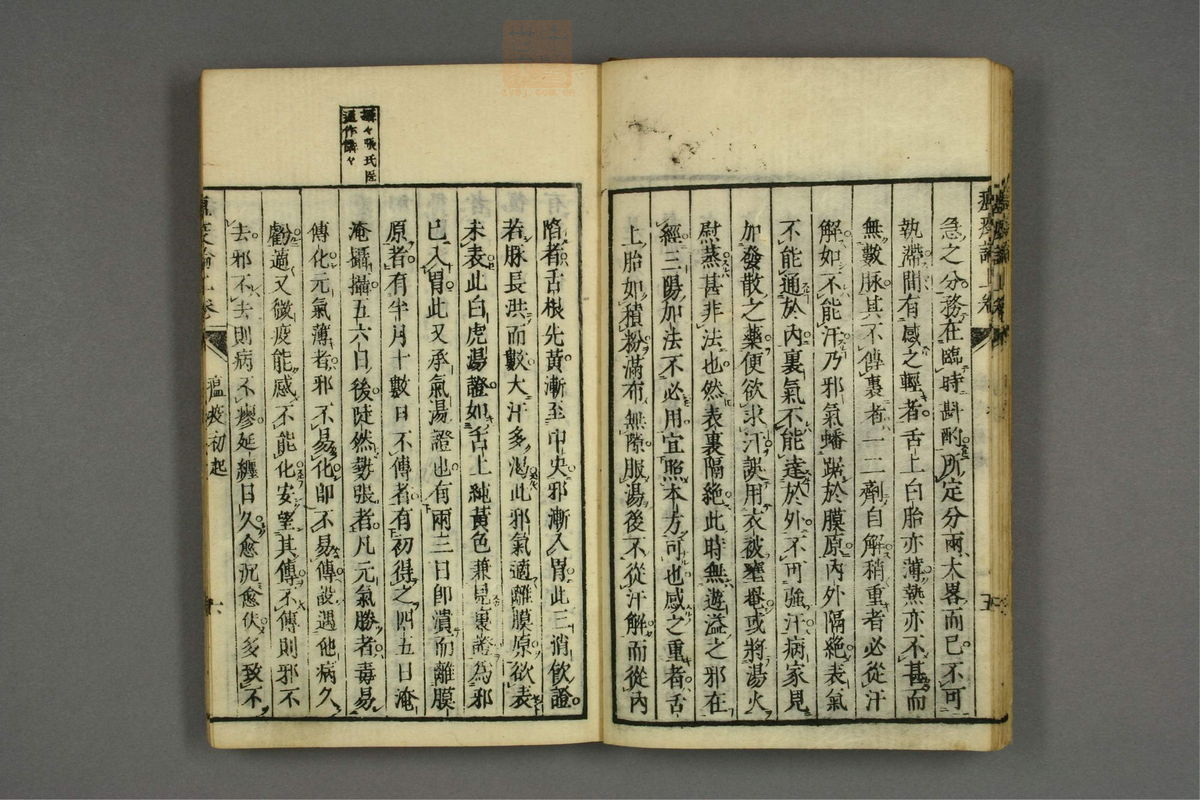 急之分務在臨時斟酌所定分兩大畧而已不可
執滯間有感之輕者舌上白胎亦薄熱亦不甚而
無數脉其不傳裏者一二劑自解稍重者必從汗
解如不能汗乃邪氣蟠踞於膜原内外隔絶表氣
不能通於内裏氣不能達於外不可強汗病家見
加發散之藥便欲求汗誤用衣被壅遏或將湯火
慰蒸甚非法也然表裏隔絶此時無遊溢之邪在
經三陽加法不必用宜照本方可也感之重者舌
上胎如積粉滿布無隙服湯後不從汗解而從内
攝々張氏医
通作懾々
陷者舌根先黄漸至中央邪漸入胃此三消飲證
若脉長洪而數大汗多渴此邪氣適離膜原欲表
未表此白虎湯證如舌上純黄色兼見裏證為邪
已入胃此又承氣湯證也有兩三日即潰而離膜
原者有半月十數日不傳者有初得之四五日淹
淹攝攝五六日後陡然勢張者凡元氣勝者毒易
傳化元氣薄者邪不易化即不易傳設遇他病久
虧適又微疫能感不能化安望其傳不傳則邪不
去邪不去則病不瘳延纏日久愈沉愈伏多致不
瘟疫論上卷
瘟疫初起